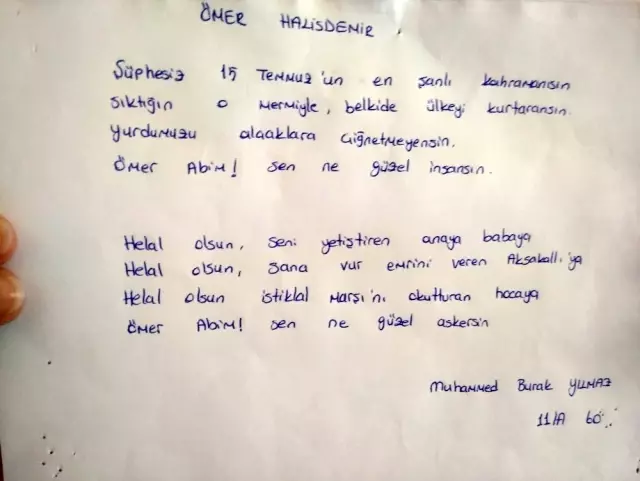 ÖMER HALİSDEMİR
Şüphesiz 15 Temmuz'un en şanlı kahramanısın
Sıktığın o mermiyle, belkide ülkeyi kurtaransın.
Yurdumuzu alçaklara çiğnetmeyensin.
Ömer Abim! Sen ne güzel insansın.
Helal olsun, seni yetiştiren anaya babaya
Helal olsun, sana vur emrini veren Aksakallı'ya
Helal olsun istiklal marşı'nı okutturan hocaya
Ömer Abim! sen ne güzel askersin
Muhammed Burak YILMAZ
11/A 60